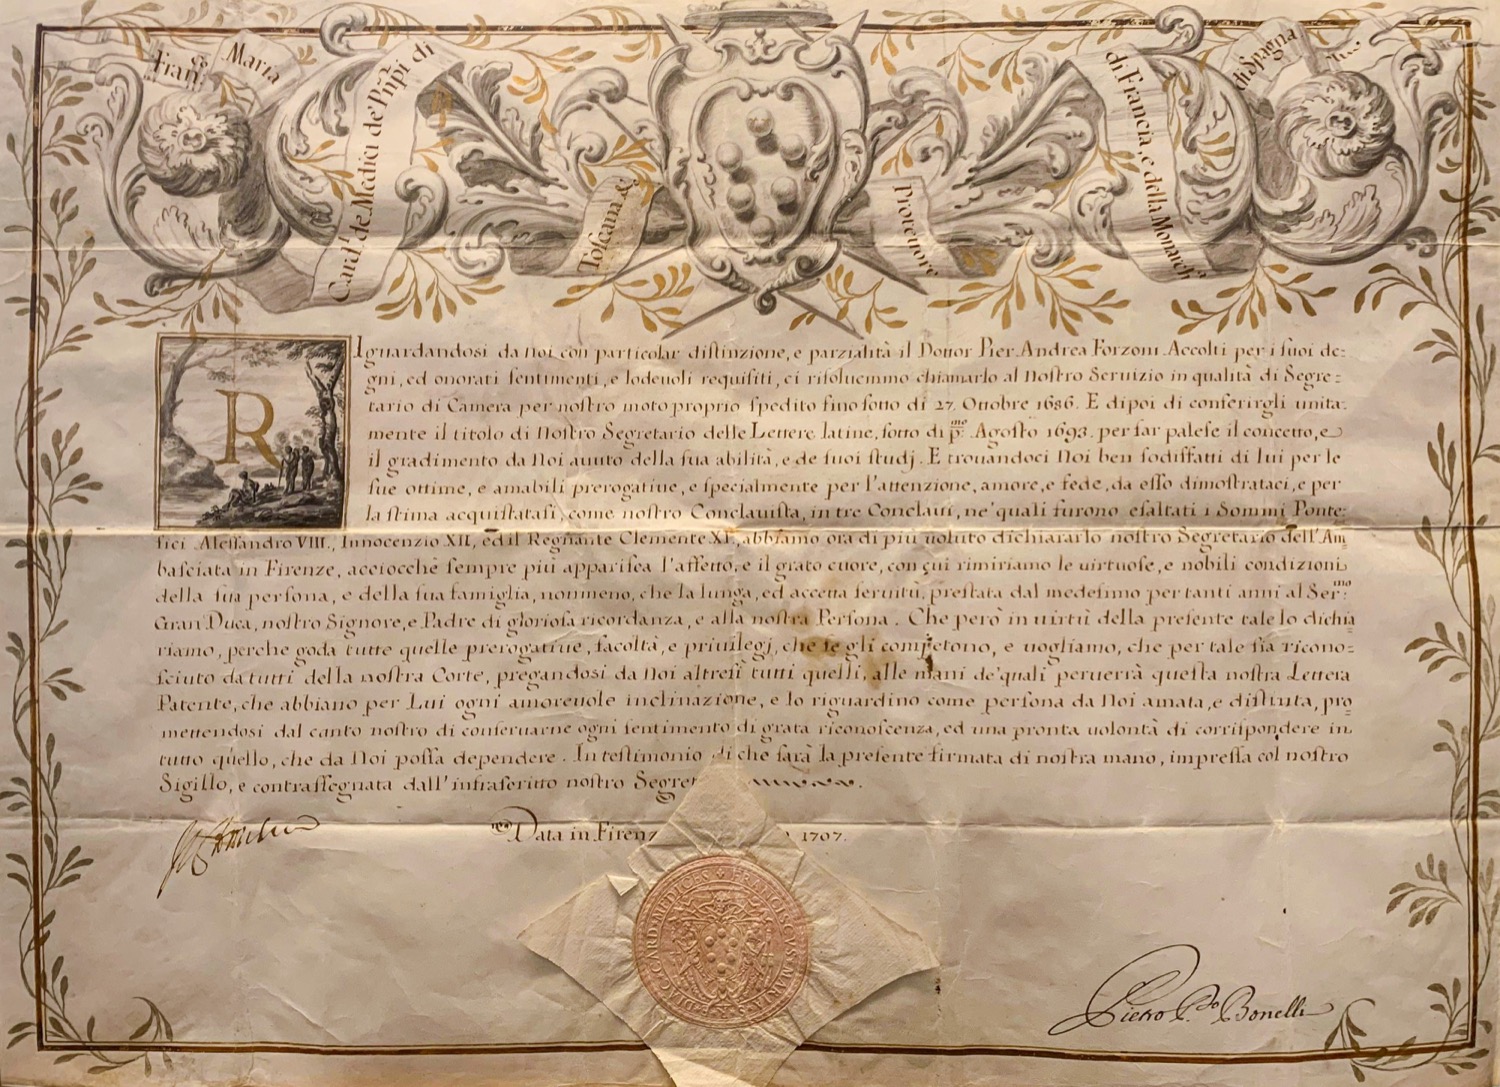 Fran.co Maria
Card.l de Medici de' Pnpi di
Toscana &
Protettore
di Francia, e della Monarch.a
di Spagna
RIguardandosi da Noi con particolar distinzione, e parzialità il Dottor Pier Andrea Forzoni Accolti per i suoi de=
gni, ed onorati sentimenti, e lodevoli requisiti, ci risoluemmo chiamarlo al Nostro Seruizio in qualità di Segre=
tario di Camera per nostro motoproprio spedito fino sotto di 27. Ottobre 1686. E dipoi di conferirgli unita=
mente il titolo di Nostro Segretario delle Lettere latine, sotto di p.mo Agosto 1693. per far palese il concetto, e
il gradimento da Noi auuto della sua abilità, e de suoi studj. E trouandoci Noi ben sodisfatti di lui per le
sue ottime, e amabili prerogatiue, e specialmente per l'attenzione, amore, e fede, da esso dimostrataci, e per
la stima acquistatasi, come nostro Conclauista, in tre Conclaui, ne' quali furono esaltati i Sommi Ponte=
fici Alessandro VIII., Innocenzio XII., ed il Regnante Clemente XI., abbiamo ora di più uoluto dichiararlo nostro Segretario dell'Am=
basciata in Firenze, acciocchè sempre più apparisca l'affetto, e il grato cuore, con cui rimiriamo le uirtuose, e nobili condizioni
della sua persona, e della sua famiglia, nonmeno, che la lunga, ed accetta seruitù, prestata dal medesimo per tanti anni al Ser.mo
Gran Duca, nostro Signore, e Padre di gloriosa ricordanza, e alla nostra Persona. Che però in uirtù della presente tale lo dichia
riamo, perche goda tutte quelle prerogatiue, facoltà, e priuilegj, che se gli competono, e uogliamo, che per tale sia ricono=
sciuto da tutti della nostra Corte, pregandosi da Noi altresì tutti quelli, alle mani de' quali peruerrà questa nostra Lettera
Patente, che abbiano per Lui ogni amoreuole inclinazione, e lo riguardino come persona da Noi amata, e distinta, pro=
mettendosi dal canto nostro di conseruarne ogni sentimento di grata riconoscenza, ed una pronta uolontà di corrispondere in
tutto quello, che da Noi possa dependere. In testimonio di che sarà la presente firmata di nostra mano, impressa col nostro
Sigillo, e contrassegnata dall'infrascritto nostro Segret
Data in Firenz 1707.
FRANCISCVS MARIA CARD MEDICES
Pietro P.lo Bonelli